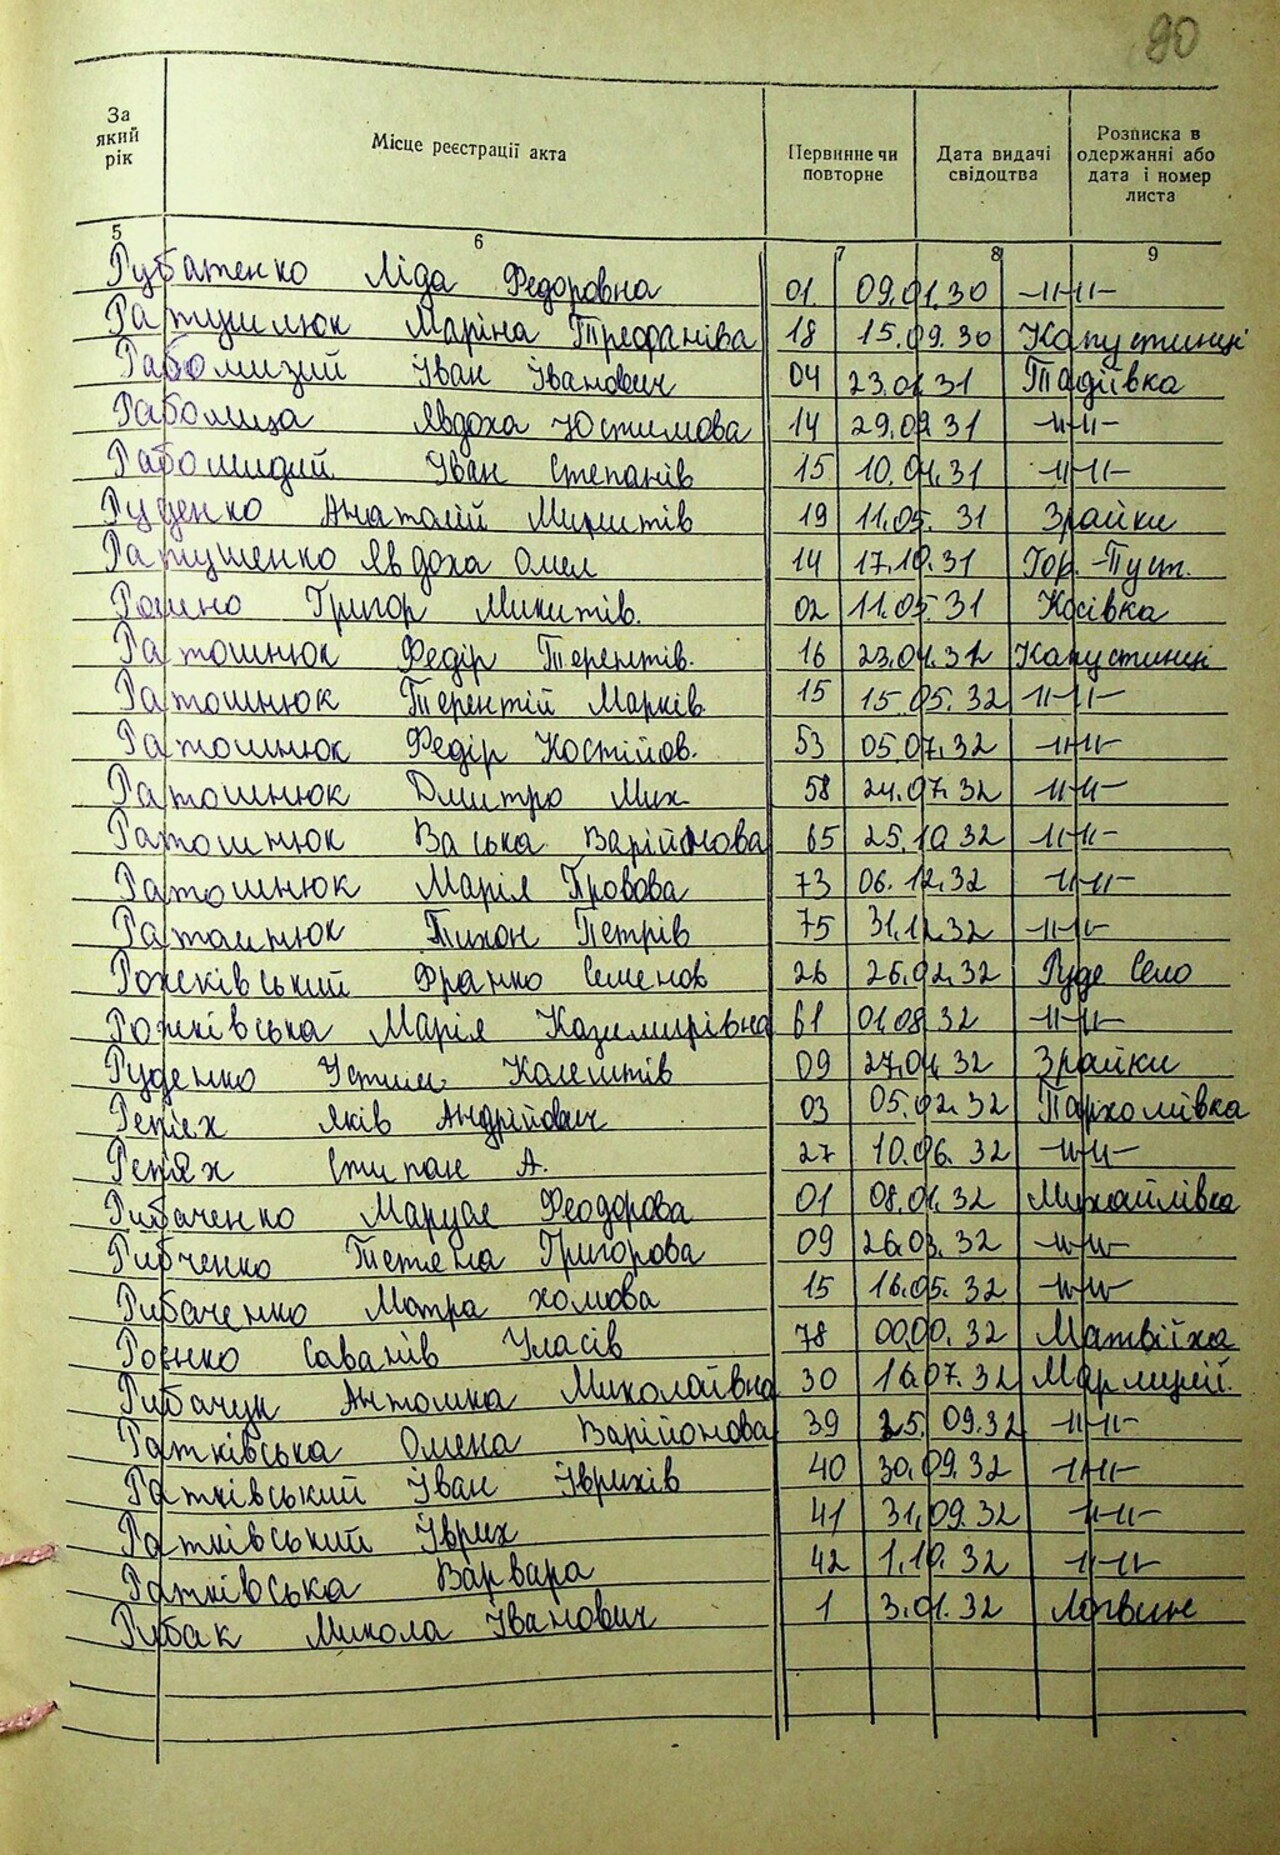 90
За який рік
Місце реєстрації акта
Первинне чи повторне
Дата видачі свідоцтва
Розписка в одержанні або дата і номер листа
5 6 7 8 9
Рубатенко Ліда Федоровна 01 09.01.30 -11-11-
Ратушнюк Маріна Трефаніва 18 15.09.30 Капустинці
Рабомизий Іван Іванович 04 23.01.31 Тадіївка
Рабомиза Явдоха Юстимова 14 29.09.31 -11-11-
Рабошидий Іван Степанів 15 10.04.31 -11-11-
Руденко Анатолій 19 11.05.31 Зрайки
Ратушенко Явдоха Омел 14 17.10.31 Гор.-Пуст.
Григор Микитів. 02 11.05.31 Косівка
Ратошнюк Федір Терентів. 16 23.04.32 Капустинці
Ратошнюк Терентій Марків 15 15.05.32 11-11-
Ратошнюк Федір Костійов. 53 05.07.32 -11-11-
Ратошнюк Дмитро Мих 58 24.07.32 11-11-
Ратошнюк Васька Варійонова 65 25.10.32 11-11-
Ратошнюк Марія Провова 73 06.12.32 -11-11-
Ратошнюк Тихон Петрів 75 31.12.32 -11-11-
Рожківський Франко Семенов 26 26.02.32 Руде Село
Рожківська Марія Казимирівна 61 01.08.32 -11-11-
Руденко Устим 09 27.04.32 Зрайки
Репєх Яків Андрійович 03 05.02.32 Пархомівка
Реп'ях Стипан А. 27 10.06.32 -11-11-
Рибаченко Маруся Феодорова 01 08.01.32 Михайлівка
Рибченко Тетяна Григорова 09 26.03.32 -11-11-
Рибаченко Мотра хомова 15 16.05.32 -11-11-
Роєнко Саванів Уласів 78 00.00.32 Матвіїха
Рибачук Антоніна Миколаївна 30 16.07.32
Ратківська Олена Варійонова 39 25.09.32 -11-11-
Ратківський Іван Іврихів 40 30.09.32 -11-11-
Ратківський Іврих 41 31.09.32 11-11-
Ратківська Варвара 42 1.10.32 -11-11-
Рибак Микола Іванович 1 3.01.32 Логвин